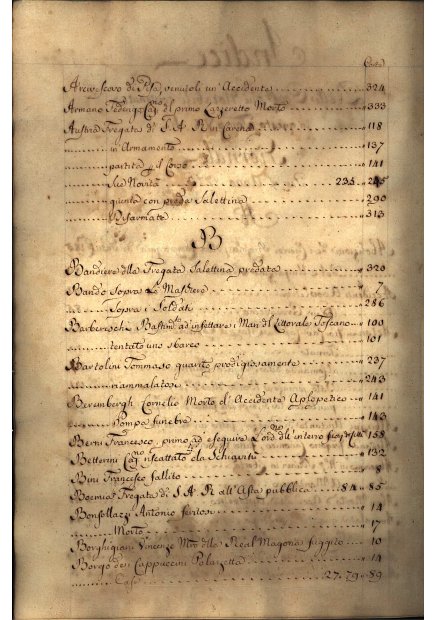 Carte
Arcivescovo di Pisa venutoli un' Accidente 324
Armano Federigo Cap.no del primo Lazzeretto Morto 333
Austria Fregata di S. A. R. in Carena 118
in Armamento 137
partita p il Corso 141
Sue Novità 235. 245
giunta con preda Salettina 290
Disarmata 313
B
Bandiere dlla Fregata Salettina predata 320
Bando Sopra Le Maschere 7
Sopra i Soldati 286
Barbereschi Bastim.ti ad infestare i Mari dl Littorale Toscano 100
tentato uno sbarco 101
Bartolini Tommaso guarito prodigiosamente 237
riammalatosi 243
Berembergh Cornelio Morto d'Accidente Apoplopetico 141
Pompa funebre 143
Berni Francesco, primo ad eseguire L'ord.no dll' interro 158
Betterini Cap.no riscattato dla Schiavitù 132
Bini Francesco fallito 8
Boemia Fregata di S. A. R. all' Asta pubblica 84. 85
Bonfollazzi Antonio feritosi 14
Morto 17
Borghigiani Vincenzo Mro dlla Real Magona fuggito 10
Borgo dei Cappuccini Palazzetta 14
Casa 27. 79. 89